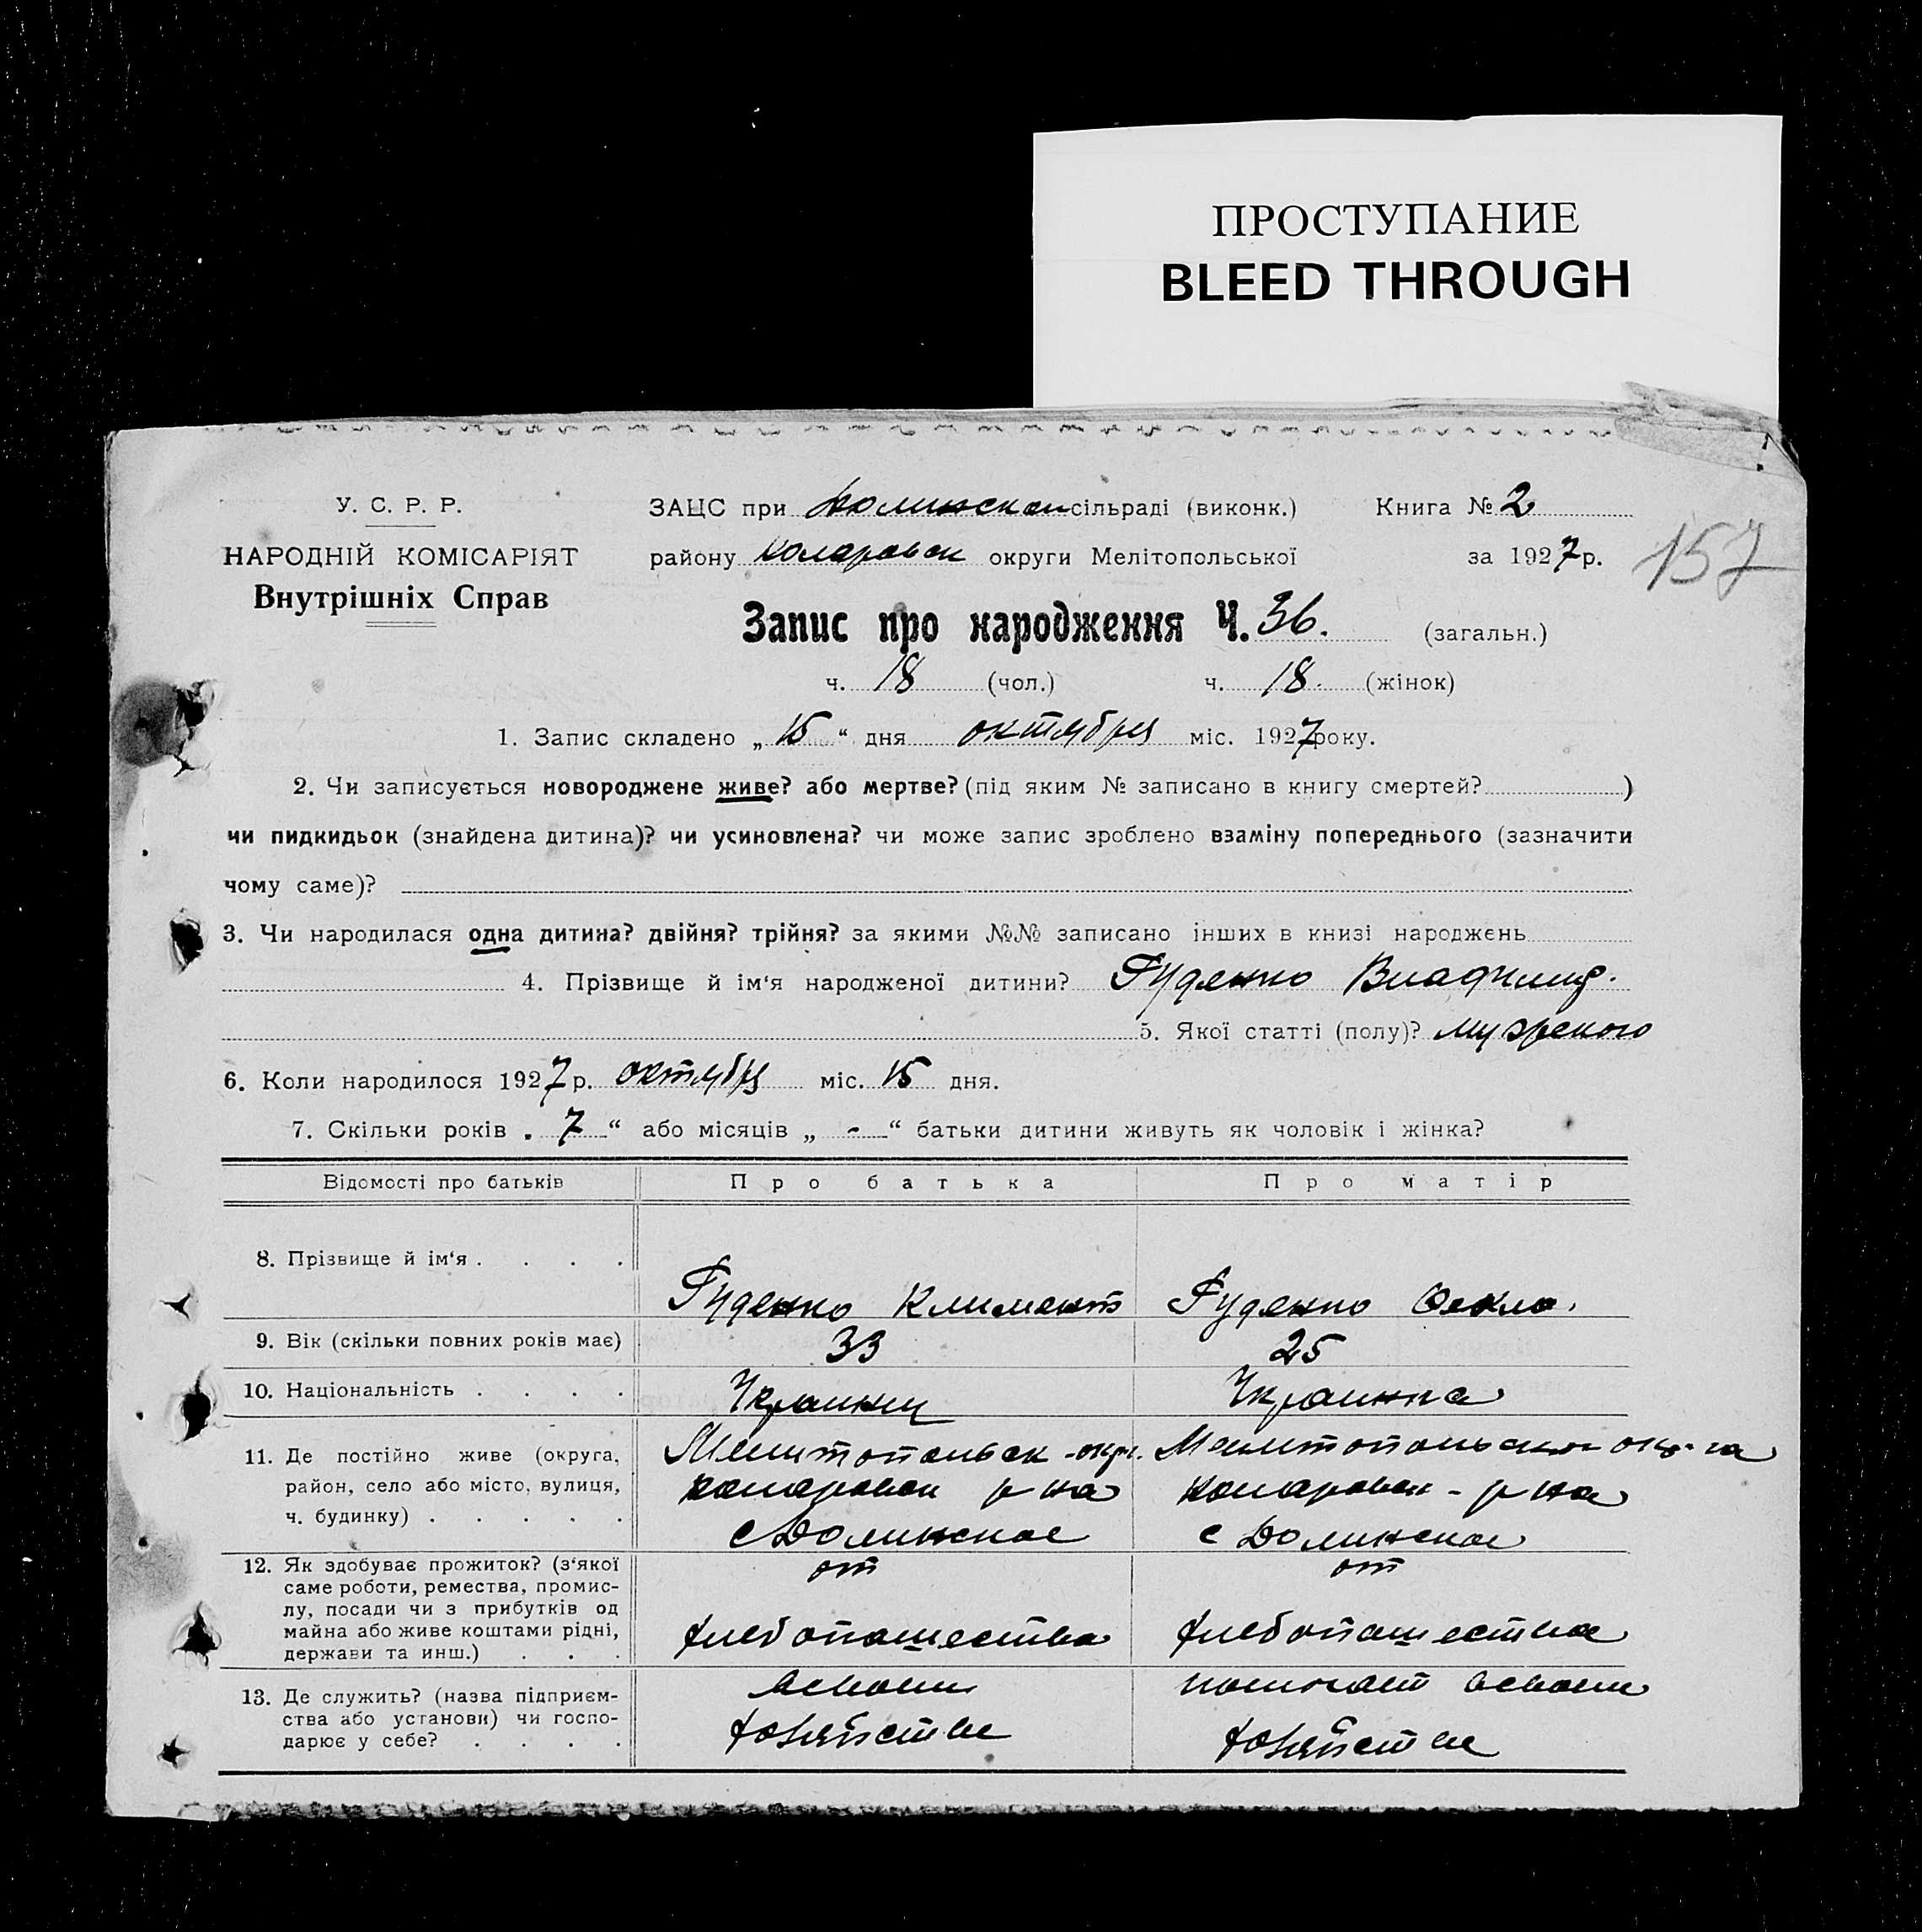 ПРОСТУПАНИЕ
BLEED THROUGH
У. С. Р. Р.
НАРОДНІЙ КОМІСАРІЯТ
Внутрішніх Справ
ЗАЦС при Долинской сільраді (виконк.) Книга № 2
району Коларовск округи Мелітопольської за 1927 р.
157
Запис про народження Ч. 36. (загальн.)
ч. 18 (чол.) ч. 18. (жінок)
1. Запис складено „ 15 “ дня октября міс. 1927 року.
2. Чи записується новороджене живе? або мертве? (під яким № записано в книгу смертей? )
чи пидкидьок (знайдена дитина)? чи усиновлена? чи може запис зроблено взаміну попереднього (зазначити
чому саме)?
3. Чи народилася одна дитина? двійня? трійня? за якими №№ записано інших в книзі народжень
4. Прізвище й ім‘я народженої дитини? Гуденко Владимир.
5. Якої статті (полу)? мужского
6. Коли народилося 1927 р. октября міс. 15 дня.
7. Скільки років „ 7 “ або місяців „ - “ батьки дитини живуть як чоловік і жінка?
Відомості про батьків Про батька Про матір
8. Прізвище й ім‘я . . . . Гуденко Климент Гуденко Фекла.
9. Вік (скільки повних років має) 33 25
10. Національність . . . . Украинец Украинка
11. Де постійно живе (округа, район, село або місто, вулиця, ч. будинку) . . . . .
Мелитопольск - окр.
Коларовск р на
с Долинское
Мелитопольской окр-га
Коларовск - р на
с Долинское
12. Як здобуває прожиток? (з‘якої саме роботи, ремества, промис-
лу, посади чи з прибутків од
майна або живе коштами рідні,
держави та инш.) . . .
от
хлебопашества
от
хлебопашества
13. Де служить? (назва підприєм-
ства або установи) чи госпо-
дарює у себе? . . . .
всвоем
хозяйстве
помогает всвоем
хозяйстве